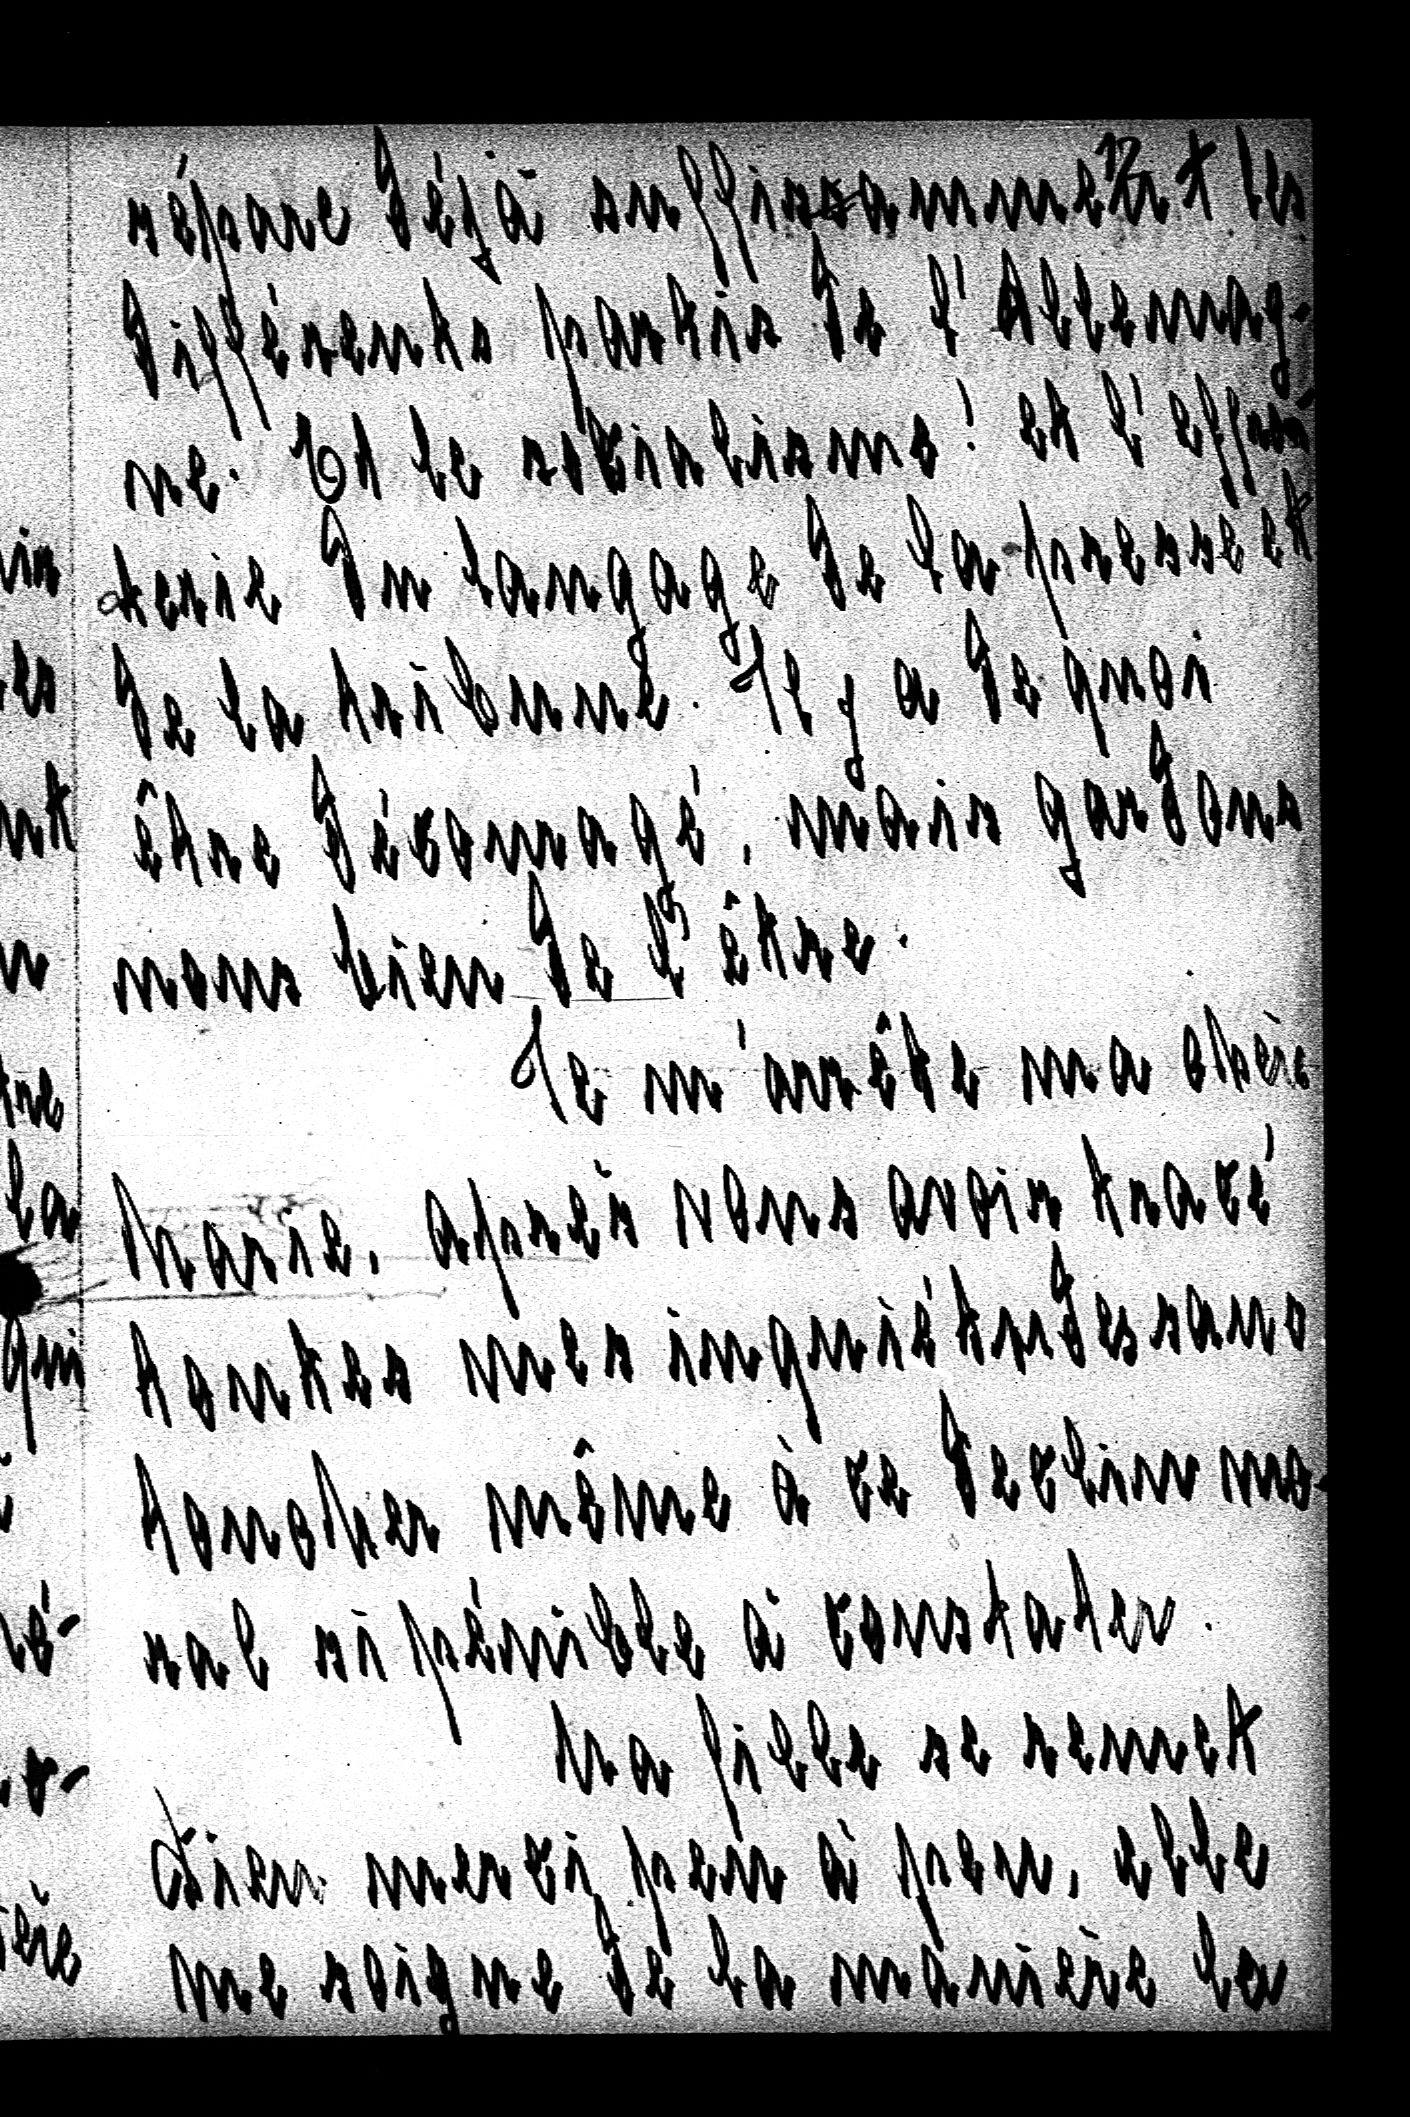 12
sépare déjà suffisamment les
différents partis de l'Allemag-
ne. Et le socialisme! et l'effron-
terie du langage de la presse et
de la tribune. Il y a de quoi
être découragé, mais gardons
nous bien de l'être.
Je m'arrête ma chère
Marie, après vous avoir tracé
toutes mes inquiétudes sans
toucher même à ce déclin mo-
ral si pénible à constater.
Ma fille se remet
Dieu merci peu à peu, elle
me soigne de la manière la
ant
la
qui